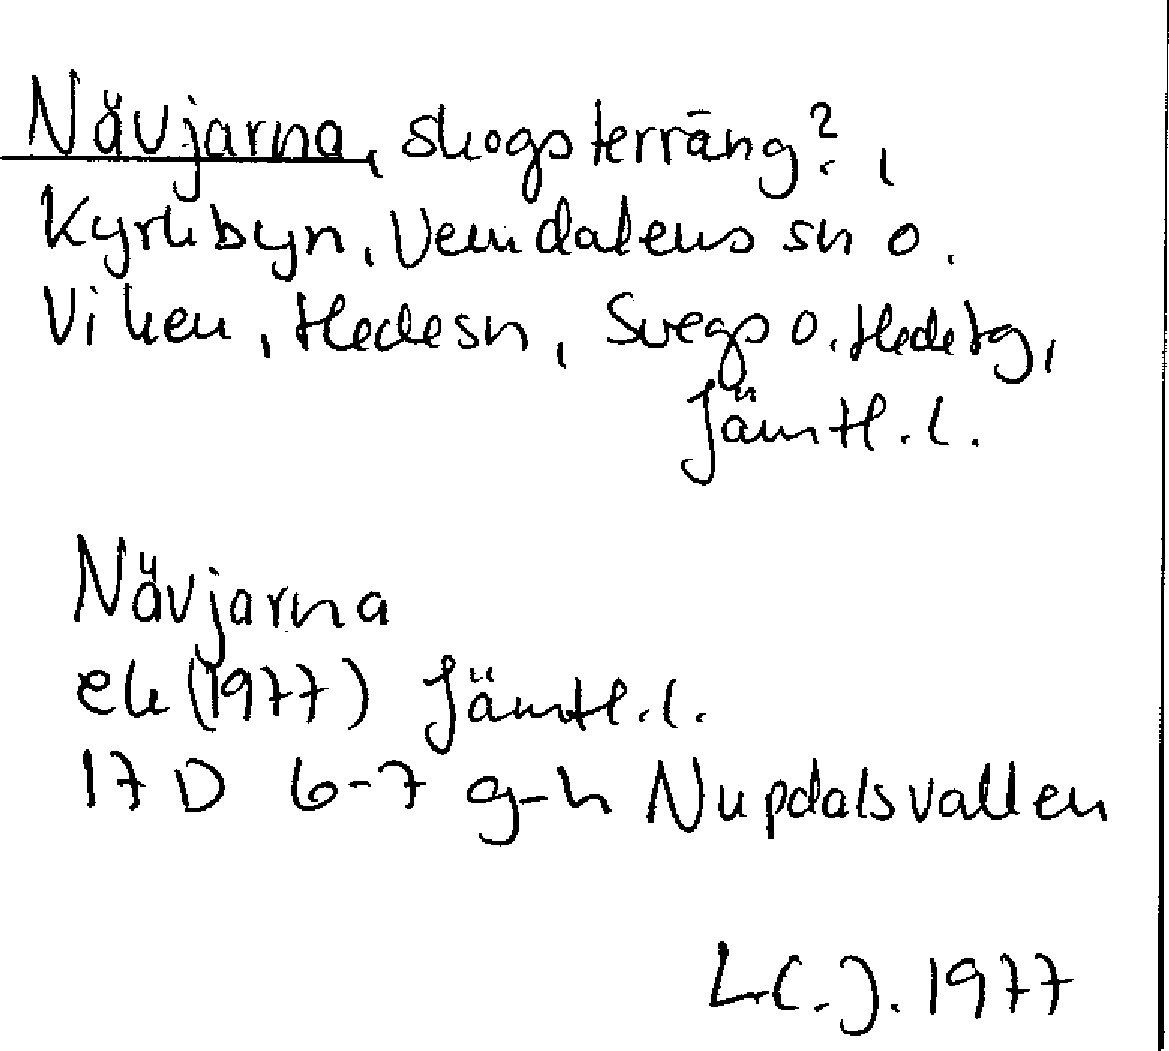 Nävjarna, skogsterräng?,
Kyrkbyn, Vemdalens sn o.
Viken, Hede sn, Svegs o. Hede tg,
Jämtl. l.
Nävjarna
ek (1977) Jämtl. l.
17 D 6-7 g-h Nupdalsvallen
L.C.J. 1977